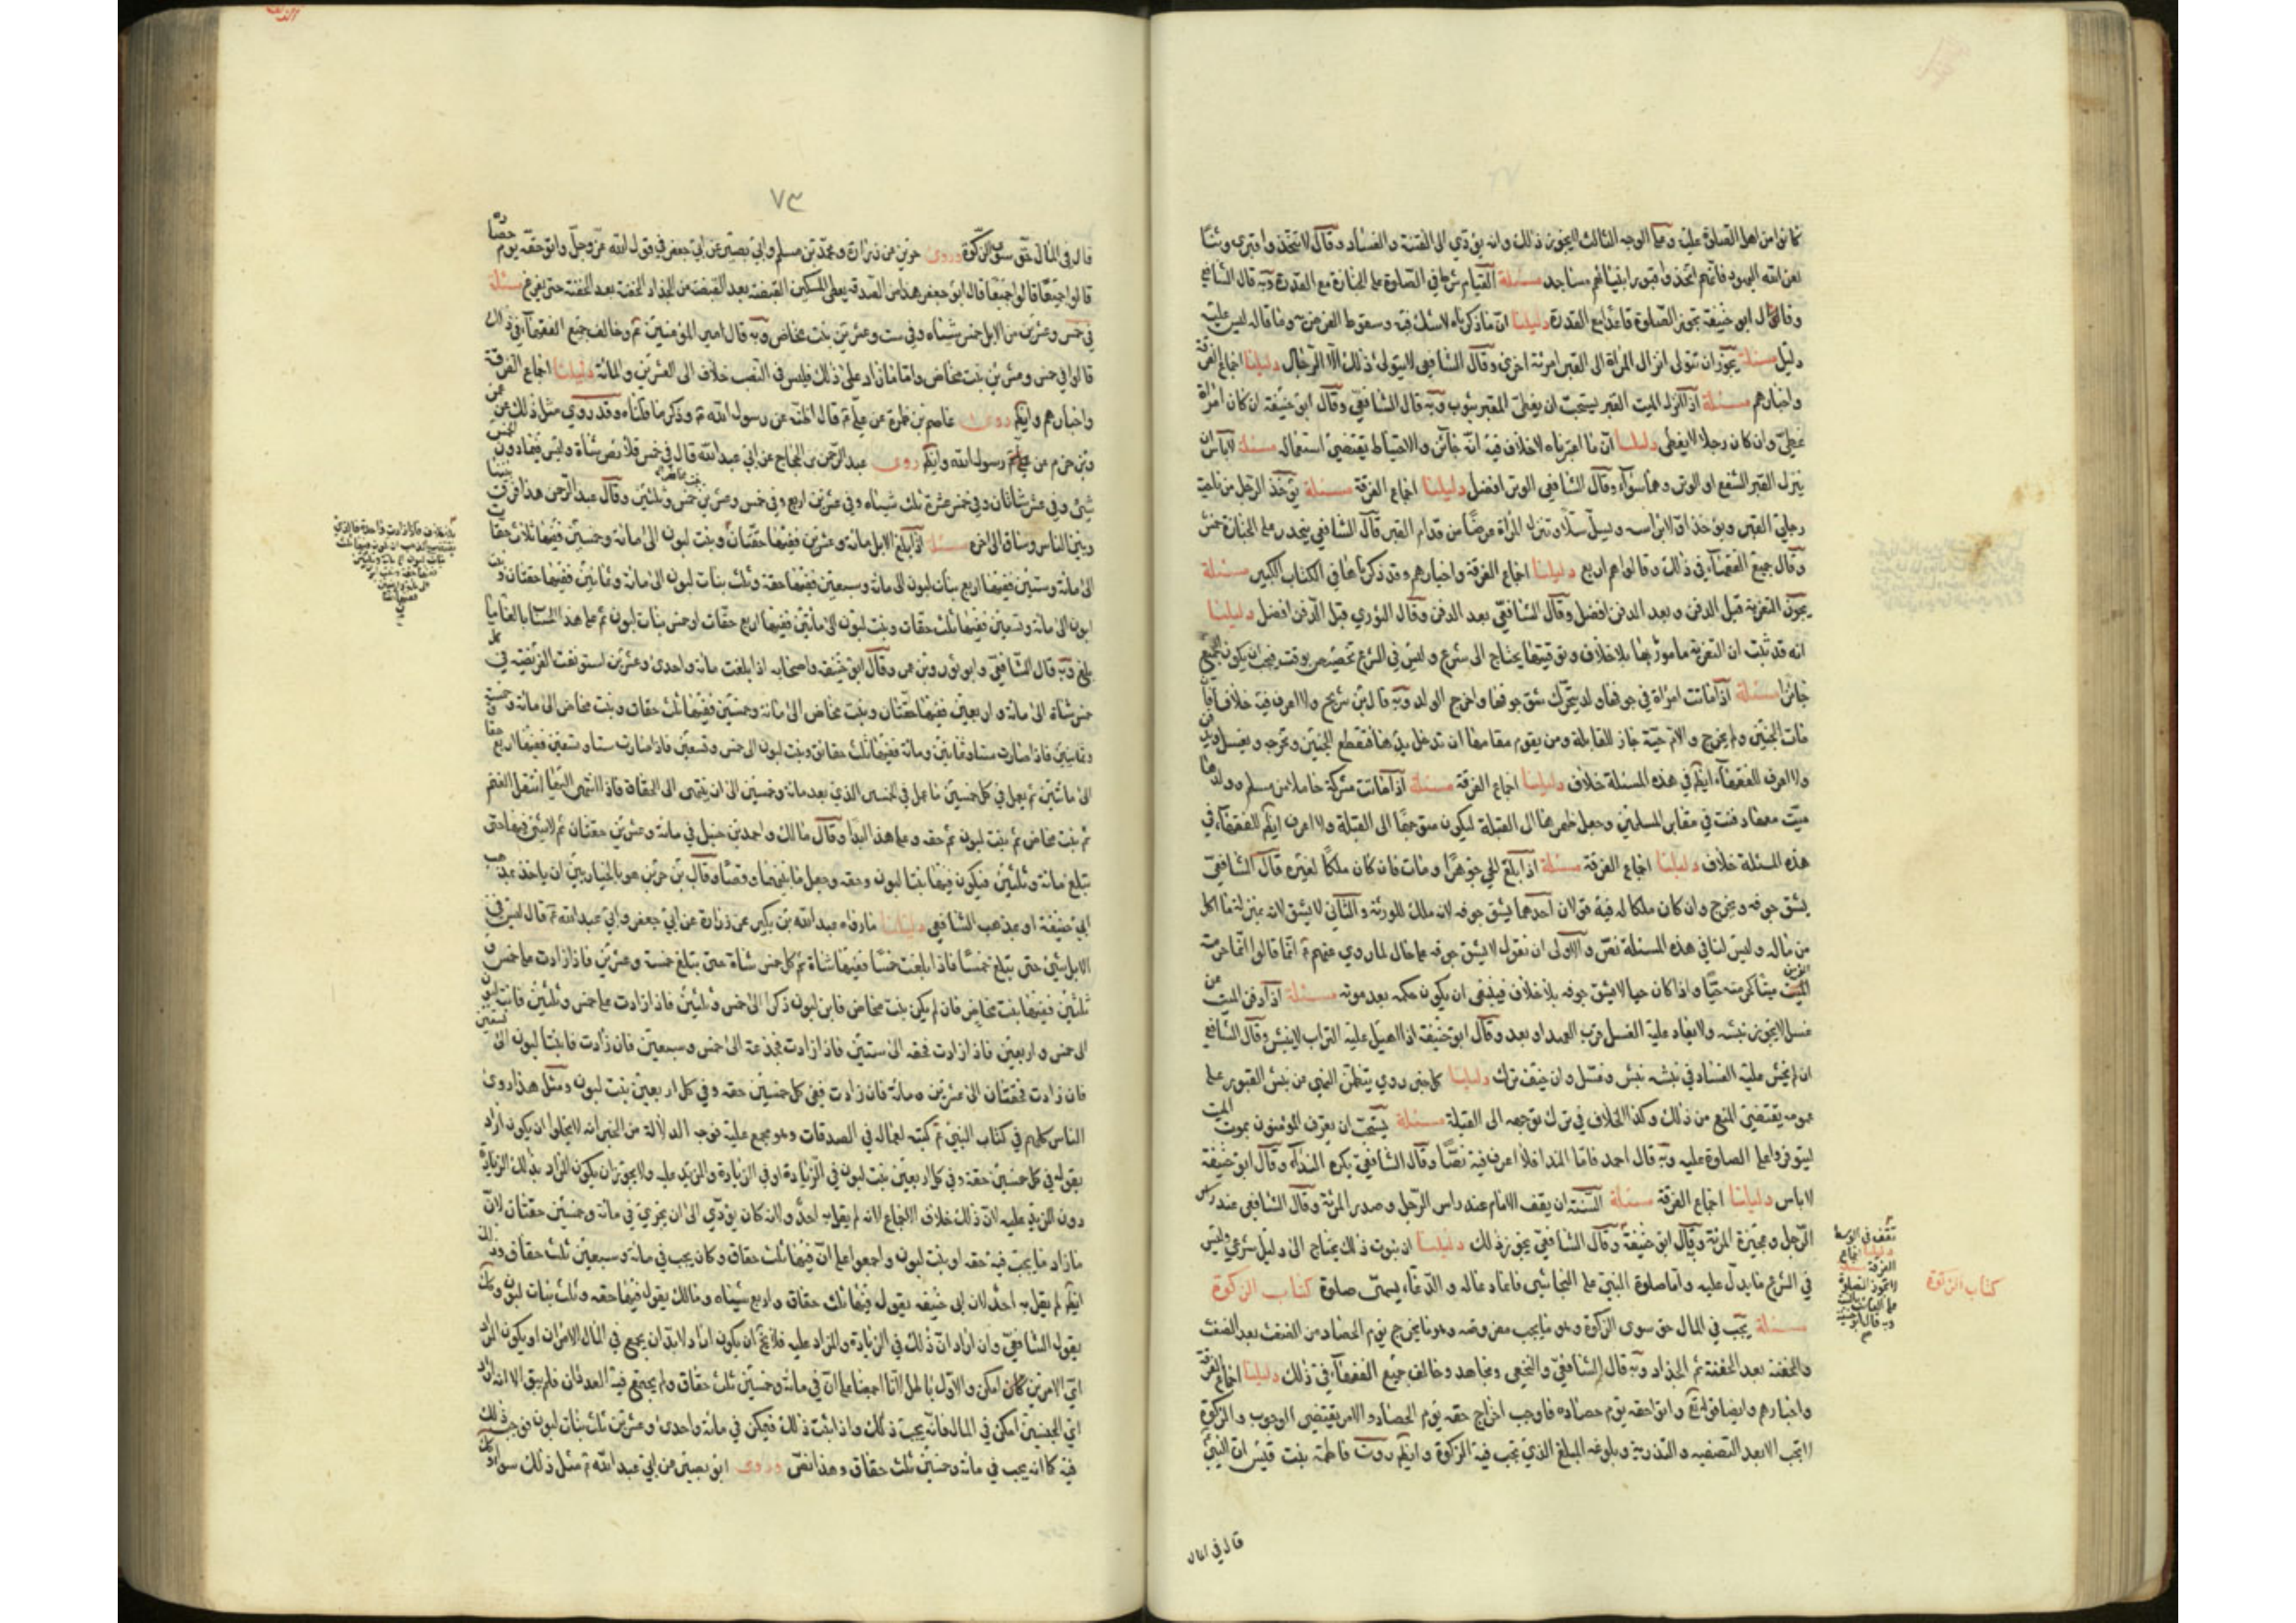 كانوا من اهل الصلوة عليه وعلى الوجه الثالث لا يجوز ذلك وانه يؤدي الى الفتنة والفساد وقال لا تتخذوا قبري وثنا
لعن الله اليهود فانهم اتخذوا قبور انبيائهم مساجد مسئلة القيام شرط في الصلوة على الجنازة مع القدرة وبه قال الشافعي
وقال ابو حنيفة تجوز الصلوة قاعدا مع القدرة دليلنا ان ما ذكرناه لا شك فيه وسقوط الفرض به وما قاله ليس عليه
دليل مسئلة يجوز ان تتولى انزال المراة الى القبر امرئة اخرى وقال الشافعي لا يتولى ذلك الا الرجال دليلنا اجماع الفرقة
واخبارهم مسئلة اذا انزل الميت القبر يستحب ان يغطى القبر بثوب وبه قال الشافعي وقال ابو حنيفة ان كان امراة
غطي وان كان رجلا لا يغطى دليلنا ان ما اعتبرناه لا خلاف فيه انه جائز والاحتياط يقتضي استعماله مسئلة لا باس ان
ينزل القبر الشفع او الوتر وهما سواء وقال الشافعي الوتر افضل دليلنا اجماع الفرقة مسئلة يؤخذ الرجل من ناحية
رجلي القبر ويؤخذ اولا براسه ويسل سلا وتنزل المراة عرضا من قدام القبر قال الشافعي
وقال جميع الفقهاء في ذلك وقالوا هم اربع دليلنا اجماع الفرقة واخبارهم وقد ذكرناها في الكتاب الكبير مسئلة
يجوز التعزية قبل الدفن وبعد الدفن افضل وقال الشافعي بعد الدفن وقال الثوري قبل الدفن افضل دليلنا
انه قد ثبت ان التعزية مامور بها بلا خلاف وتوقيتها يحتاج الى شرع وليس في الشرع تخصيص بوقت فيجب ان يكون الجميع
جائزا مسئلة اذا ماتت امراة في جوفها ولد يتحرك شق جوفها واخرج الولد وبه قال ابن سريج ولا اعرف فيه خلافا فان
مات الجنين ولم يخرج والام حية جاز للقابلة ومن يقوم مقامها ان تدخل يدها فتقطع الجنين وتخرجه ويغسل ويكفن
ولا اعرف للفقهاء ايضا في هذه المسئلة خلاف دليلنا اجماع الفرقة مسئلة اذا ماتت مشركة حاملا من مسلم وولدها
ميت معها دفنت في مقابر المسلمين وجعل ظهرها الى القبلة ليكون متوجها الى القبلة ولا اعرف ايضا للفقهاء في
هذه المسئلة خلاف دليلنا اجماع الفرقة مسئلة اذا بلغ الحي جوهرا ومات فان كان ملكا لغيره قال الشافعي
يشق جوفه ويخرج وان كان ملكا له فيه قولان احدهما يشق جوفه لانه ملك للورثة والثاني لا يشق لانه بمنزلة ما اكل
من ماله وليس لنا في هذه المسئلة نص والاولى ان نقول لا يشق جوفه على حال لما روي عنهم انما قالوا انما حرمت
الميت ميتا كحرمته حيا واذا كان حيا لا يشق جوفه بلا خلاف فينبغي ان يكون حكمه بعد موته مسئلة اذا دفن الميت
غسل لا يجوز نبشه ولا يعاد عليه الغسل قرب العهد او بعد وقال ابو حنيفة اذا اهيل عليه التراب لا ينبش وقال الشافعي
ان لم يخش عليه الفساد في نبشه نبش وغسل وان خيف ترك دليلنا كل خبر روي يتضمن النهي عن نبش القبور على
عمومه يقتضي المنع من ذلك وكذا الخلاف في ترك توجهه الى القبلة مسئلة يستحب ان يعرف المؤمنون بموت الميت
ليتوفروا على الصلوة عليه وبه قال احمد فاما الندا فلا اعرف فيه نصا وقال الشافعي يكره النداء وقال ابو حنيفة
لا باس دليلنا اجماع الفرقة مسئلة السنة ان يقف الامام عند راس الرجل وصدر المرئة وقال الشافعي عند راس
الرجل وعجيزة المرئة وقال ابو حنيفة وقال الشافعي يجوز ذلك دليلنا ان ثبوت ذلك يحتاج الى دليل شرعي وليس
في الشرع ما يدل عليه واما صلوة النبي على النجاشي فانما دعا له والدعاء يسمى صلوة كتاب الزكوة
مسئلة يجب في المال حق سوى الزكوة وهو ما يجب يوم الحصاد من الضغث بعد الضغث
والحفنة بعد الحفنة ثم الجذاذ وبه قال الشافعي والنخعي ومجاهد وخالف جميع الفقهاء في ذلك دليلنا اجماع الفرقة
واخبارهم وايضا قوله تع واتوا حقه يوم حصاده فاوجب اخراج حقه يوم الحصاد والامر يقتضي الوجوب والزكوة
لا تجب الا بعد التصفيه والتذرية وبلوغه المبلغ الذي تجب فيه الزكوة وايضا روت فاطمة بنت قيس ان النبي
كتاب الزكوة
قال في المال
٧٣
قال في المال حق سوى الزكوة وروى حريز عن زرارة ومحمد بن مسلم وابي بصير عن ابي جعفر في قول الله عز وجل واتوا حقه يوم حصاده
قالوا جميعا قال ابو جعفر هذا من الصدقه يعطي المسكين القبضة بعد القبضة من الجذاذ الحفنة بعد الحفنة حتى يفرغ مسئلة
في خمس وعشرين من الابل خمس شياه وفي ست وعشرين بنت مخاض وبه قال امير المؤمنين وخالف جميع الفقهاء في ذلك
قالوا في خمس وعشرين بنت مخاض واما ما زاد على ذلك فليس في النصب خلاف الى العشرين والمائة دليلنا اجماع الفرقة
واخبارهم وايضا روى عاصم بن ضمرة عن علي قال اظنه عن رسول الله وذكر ما قلناه وقد روي مثل ذلك عن
وبن حزم عن رسول الله وايضا روى عبد الرحمن بن الحجاج عن ابي عبد الله قال في خمس قلائص شاة وليس فيما دون الخمس
شيئ وفي عشر شاتان وفي خمس عشرة ثلث شياه وفي عشرين اربع وفي خمس وعشرين خمس وقال عبد الرحمن هذا فرق بيننا
وبين الناس وساق الى اخره مسئلة اذا بلغ الابل مائة وعشرين ففيها حقتان وبنت لبون الى مائة وخمسين ففيها ثلاث حقاق
الى مائة وستين ففيها اربع بنات لبون الى مائة وسبعين ففيها حقة وثلث بنات لبون الى مائة وثمانين ففيها حقتان وبنت
لبون الى مائة وتسعين ففيها ثلث حقات وبنت لبون الى مائتين ففيها اربع حقات او خمس بنات لبون ثم على هذا الحساب بالغا ما
بلغ وبه قال الشافعي وابو ثور وقال ابو حنيفة واصحابه اذا بلغت مائة واحدى وعشرين استونفت الفريضة في كل
خمس شاة الى مائة واربعين ففيها حقتان وبنت مخاض الى مائة وخمسين ففيها ثلث حقاق وبنت مخاض الى مائة وخمسة
وثمانين فاذا صارت ستا وثمانين ومائة ففيها ثلث حقاق وبنت لبون الى خمس وتسعين فاذا صارت ستا وتسعين ففيها اربع حقاق
الى مائتين ثم يعمل في كل خمسين ما عمل في الخمسين الذي بعد مائة وخمسين الى ان ينتهى الى الحقاق فاذا انتهى اليها انتقل الى الغنم
ثم بنت مخاض ثم بنت لبون ثم حقه وعلى هذا ابدا وقال مالك واحمد بن حنبل في مائة وعشرين حقتان ثم لا شيئ فيها حتى
تبلغ مائة وثلثين فيكون فيها بنتا لبون وحقه وقال بن جرير هو بالخيار بين ان ياخذ بمذهب
ابي حنيفة او بمذهب الشافعي دليلنا ما رواه عبد الله بن بكير عن زرارة عن ابي جعفر وابي عبد الله قال ليس في
الابل شيئ حتى تبلغ خمسا فاذا بلغت خمسا ففيها شاة ثم كل خمس شاة حتى تبلغ خمسة وعشرين فاذا زادت
ففيها بنت مخاض فان لم يكن بنت مخاض فابن لبون ذكرا الى خمس وثلثين فاذا زادت على خمس وثلثين فابنة لبون
الى خمس واربعين فاذا زادت فحقه الى ستين فاذا زادت فجذعة الى خمس وسبعين فان زادت فابنتا لبون الى تسعين
فان زادت فحقتان الى عشرين ومائة فان زادت ففي كل خمسين حقه وفي كل اربعين بنت لبون ومثل هذا روى
الناس كلهم في كتاب النبي كتبه لعماله في الصدقات وهو مجمع عليه فوجه الدلالة من الخبر انه لا يخلوا ان يكون اراد
بقوله في كل خمسين حقة وفي كل اربعين بنت لبون في الزيادة او في الزيادة والمزيد عليه ولا يجوز ان يكون المراد بذلك الزيادة
دون المزيد عليه لان ذلك خلاف الاجماع لانه لم يقل به احد ولانه كان يؤدي الى ان يجزي في مائة وخمسين حقتان لان
ما زاد ما يجب فيه حقه او بنت لبون واجمعوا على ان فيها ثلث حقاق وكان يجب في مائة وسبعين ثلث حقاق وذلك
ايضا لم يقل به احد لان ابي حنيفة يقول فيها ثلث حقاق واربع شياه ومالك يقول فيها حقه وثلث بنات لبون وكذلك
يقول الشافعي وان اراد ان ذلك في الزيادة والمزاد عليه فلا يخ ان يكون اراد لا بد ان يجمع في المال الامران او يكون المراد
اي الامرين كان امكن والاول باطل لانا اجمعنا على ان في مائة وخمسين ثلث حقاق ولم يجتمع فيه العددان فلم يبق الا انه اراد
اي الجنسين امكن في المال فانه يجب ذلك واذا ثبت ذلك فيمكن في مائة واحدى وعشرين ثلث بنات لبون فوجب ذلك
فيه كما انه يجب في مائة وخمسين ثلث حقاق وهذا نص وروى ابو بصير عن ابي عبد الله مثل ذلك سواء